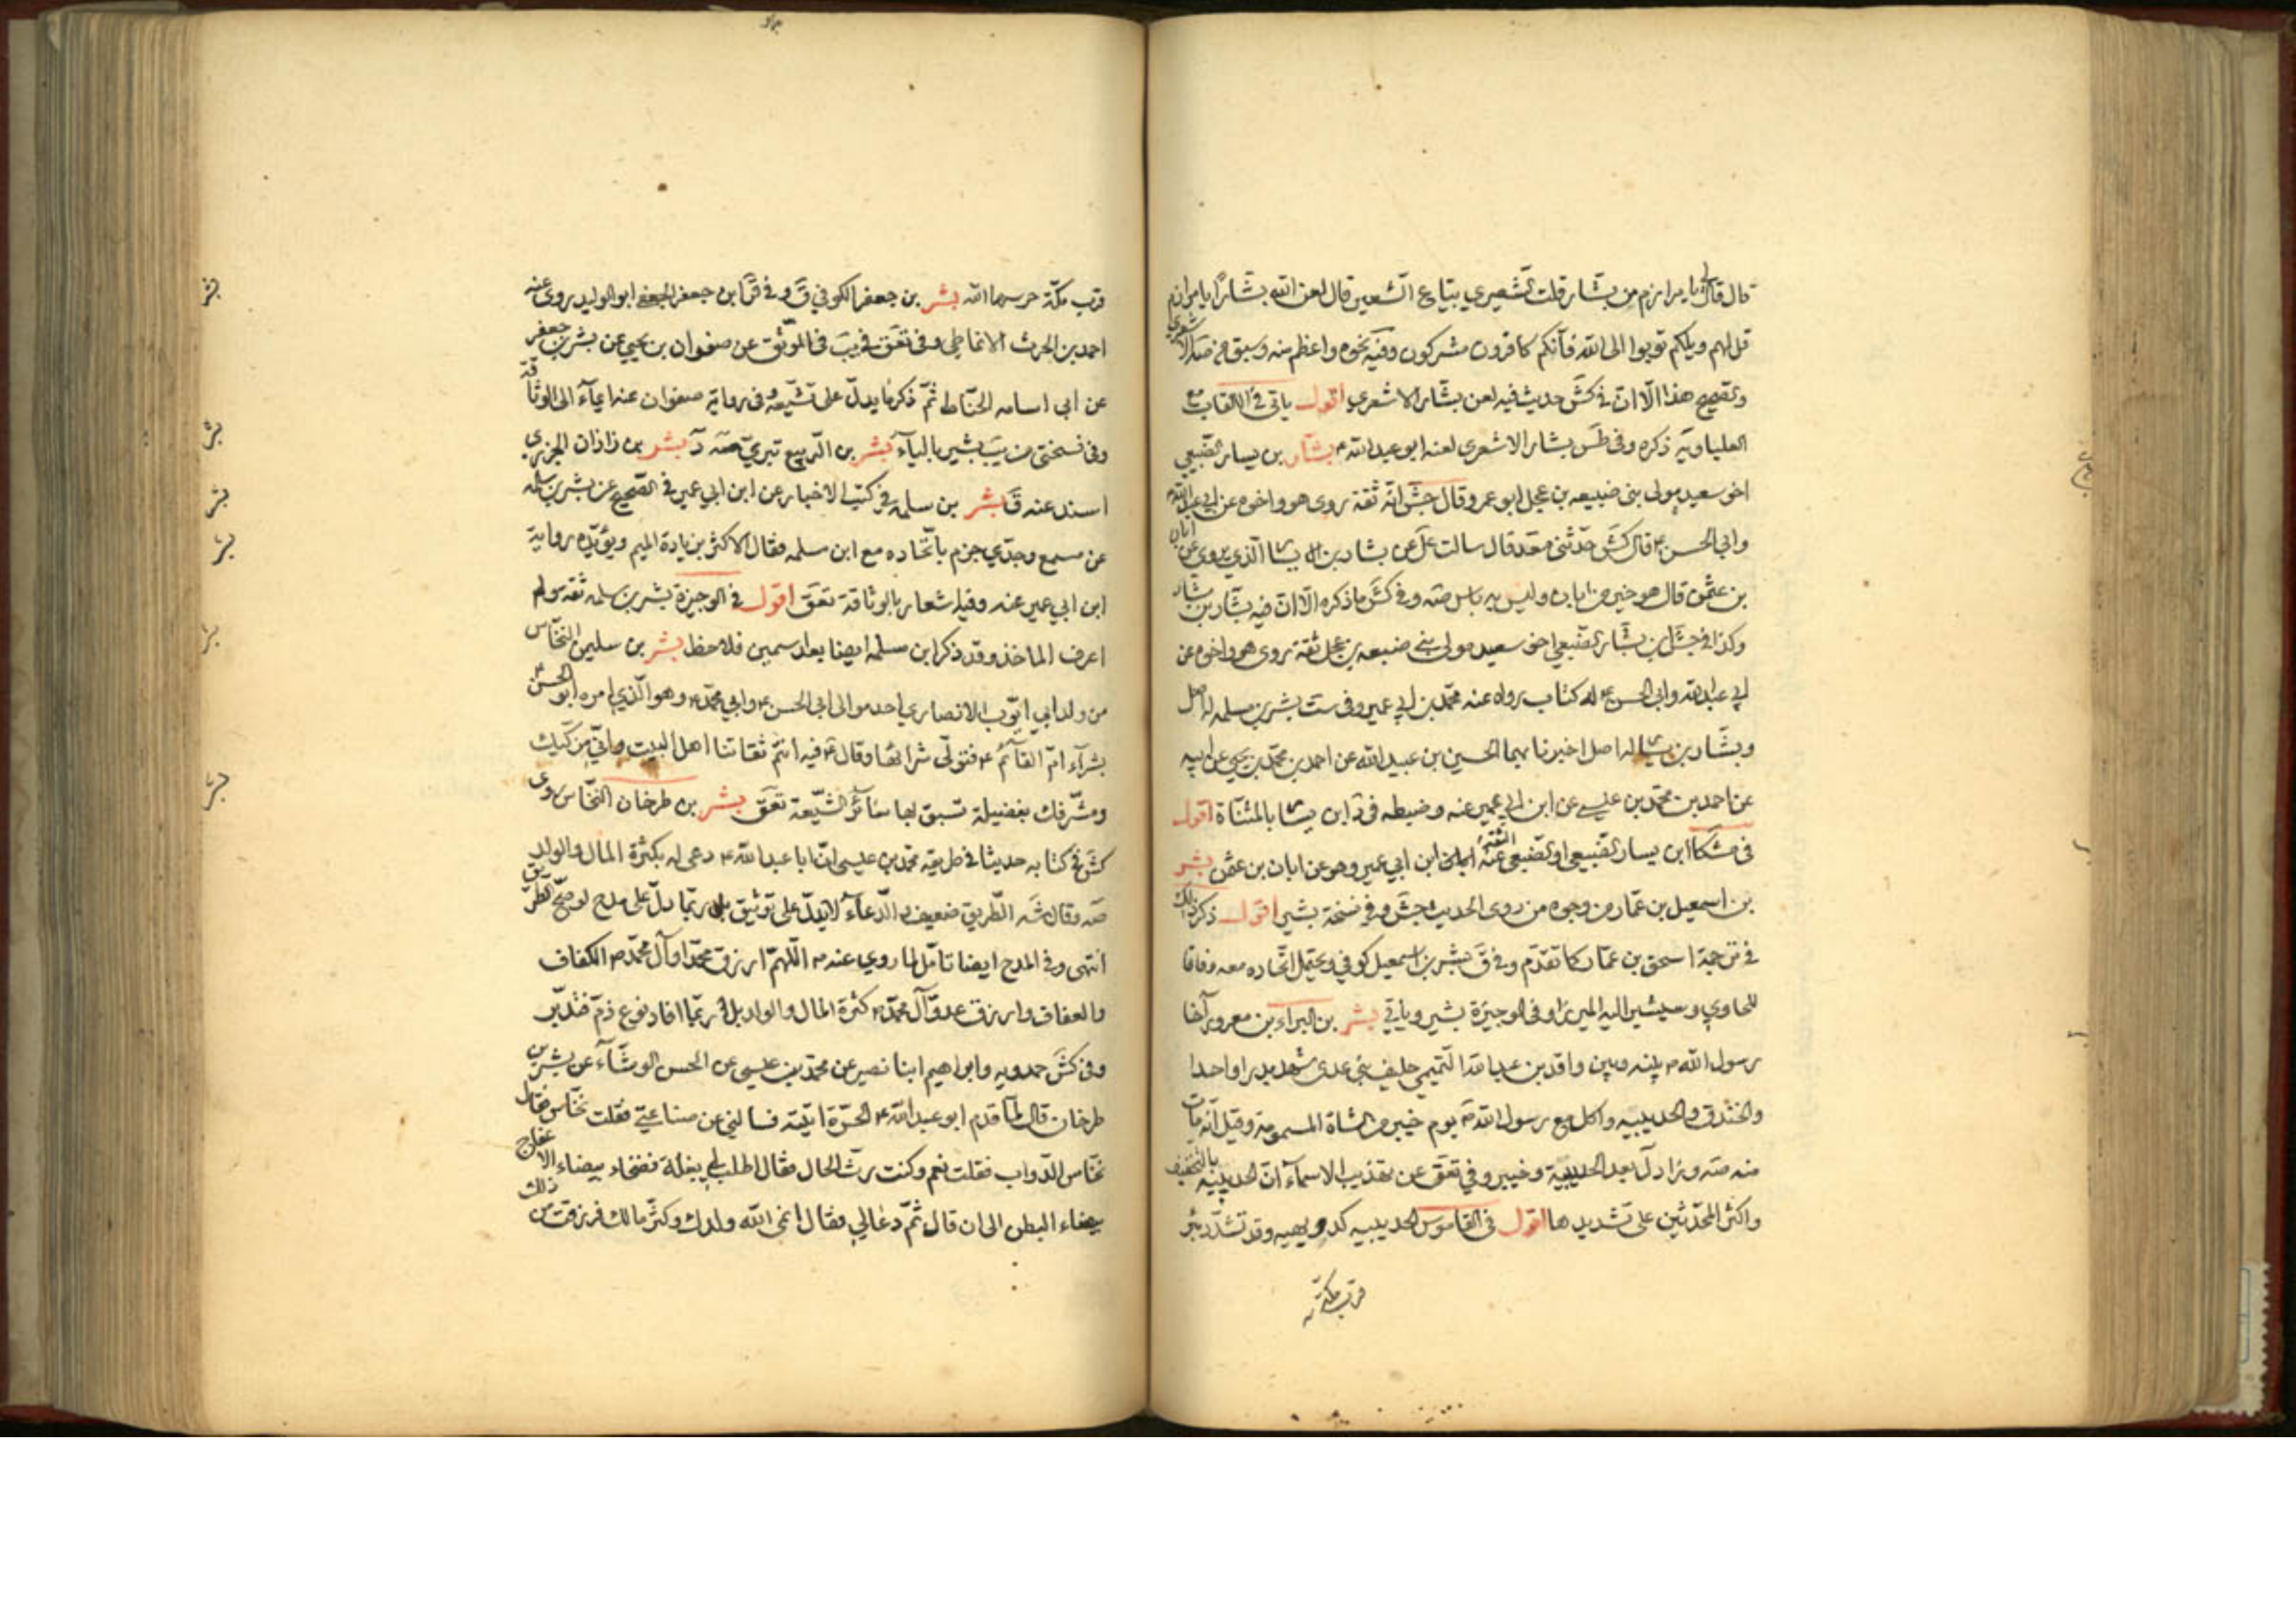 قال قال لي يا مرازم من بشار قلت الشعيري بياع الشعير قال لعن الله بشارا يا مرازم
قل لهم ويلكم توبوا الى الله فانكم كافرون مشركون وفيه نحوه واعظم منه وسبق في الاشعري
وتصحيح هذا الا ان في كش حديث فيه لعن بشار الاشعري اقول ياتي في الالقاب مع
العلياوية ذكره وفي طس بشار الاشعري لعنه ابو عبد الله ع بشار بن يسار الضبيعي
اخو سعيد مولى بني ضبيعه بن عجل ابو عمرو قال جش انه ثقة روى هو واخوه عن ابي عبد الله
وابي الحسن ع قال كش حدثني محمد قال سالت عل عن بشار بن يسار الذي يروي عن ابان
بن عثمن قال هو خير من ابان وليس به باس صه وفي كش ما ذكره الا ان فيه بشار بن بشار
وكذا في جش ابن بشار الضبيعي اخو سعيد مولى بني ضبيعه بن عجل ثقة روى هو واخوه عن
ابي عبد الله وابي الحسن ع له كتاب رواه عنه محمد بن ابي عمير وفي ست بشر بن مسلمه له اصل
وبشار بن يسار له اصل اخبرنا بهما الحسين بن عبيد الله عن احمد بن محمد بن يحيى عن ابيه
عن احمد بن محمد بن عيسى عن ابن ابي عمير عنه وضبطه في د ابن يسار بالمثناة اقول
في مشكا ابن يسار الضبيعي او الضبعي الثقة عنه ابان ابن ابي عمير وهو عن ابان بن عثمن بشر
بن اسمعيل بن عمار من وجوه من روى الحديث جش وفي نسخة بشير اقول ذكر ذلك
في ترجمة اسحق بن عمار كما تقدم وفي ق بشر بن اسمعيل كوفي ويحتمل اتحاده معه وفاقا
للحاوي وسيشير اليه الميرزا وفي الوجيزة بشير وياتي بشر بن البراء بن معرور آخا
رسول الله ص بينه وبين واقد بن عبد الله التميمي حليف بني عدي شهد بدرا واحدا
والخندق والحديبيه واكل مع رسول الله ص يوم خيبر من الشاة المسمومة وقيل انه مات
منه صه وزاد ل بعد الحديبية وخيبر وفي تعق عن تهذيب الاسماء ان الحديبيه بالتخفيف
واكثر المحدثين على تشديدها اقول في القاموس الحديبيه كدويهيه وقد تشدد بئر
قرب مكة
قرب مكة حرسها الله بشر بن جعفر الكوفي ق وفي قر ابن جعفر الجعفي ابو الوليد روى عنه
احمد بن الحرث الانماطي وفي تعق في يب في الموثق عن صفوان بن يحيى عن بشر بن جعفر
عن ابي اسامه الحناط ثم ذكر ما يدل على تشيعه وفي رواية صفوان عنه ايماء الى الوثاقة
وفي نسختي من يب بشير بالياء بشر بن الربيع تبري صه د بشر بن زاذان الجزري
اسند عنه ق بشر بن سلمه في كتب الاخبار عن ابن ابي عمير في الصحيح عن بشر بن سلمه
عن مسمع وجدي جزم باتحاده مع ابن سلمه وقال الاكثر بزيادة الميم ويؤيده رواية
ابن ابي عمير عنه وفيه اشعار بالوثاقة تعق اقول في الوجيزة بشر بن سلمه ثقه ولم
اعرف الماخذ وقد ذكر ابن مسلمه ايضا بعد اسمين فلاحظ بشر بن سليمن النخاس
من ولد ابي ايوب الانصاري احد موالى ابي الحسن ع وابي محمد ع وهو الذي امره ابو الحسن ع
بشراء ام القائم ع فتولى شرائها وقال ع فيه انتم ثقاتنا اهل البيت واني مزكيك
ومشرفك بفضيلة تسبق بها سائر الشيعة تعق بشر بن طرخان النخاس روى
كش في كتابه حديثا في طريقه محمد بن عيسى ان ابا عبد الله ع دعى له بكثرة المال والولد
صه وقال شه الطريق ضعيف والدعاء لا يدل على توثيق بل ربما دل على مدح لو صح الطريق
انتهى وفي المدح ايضا تامل لما روي عنه ص اللهم ارزق محمدا وآل محمد ص الكفاف
والعفاف وارزق عدو آل محمد ص كثرة المال والولد بل ربما افاد نوع ذم فتدبر
وفي كش حمدويه وابراهيم ابنا نصير عن محمد بن عيسى عن الحسن الوشاء عن بشر بن
طرخان قال لما قدم ابو عبد الله ع الحيرة اتيته فسالني عن صناعتي فقلت نخاس فقال
نخاس الدواب فقلت نعم وكنت رث الحال فقال اطلب لي بغلة فضحاء بيضاء الاعفاج
بيضاء البطن الى ان قال ثم دعا لي فقال انمى الله ولدك وكثر مالك فرزقت من ذلك
بشر
بشر
بشر
بشر
بشر
بشر